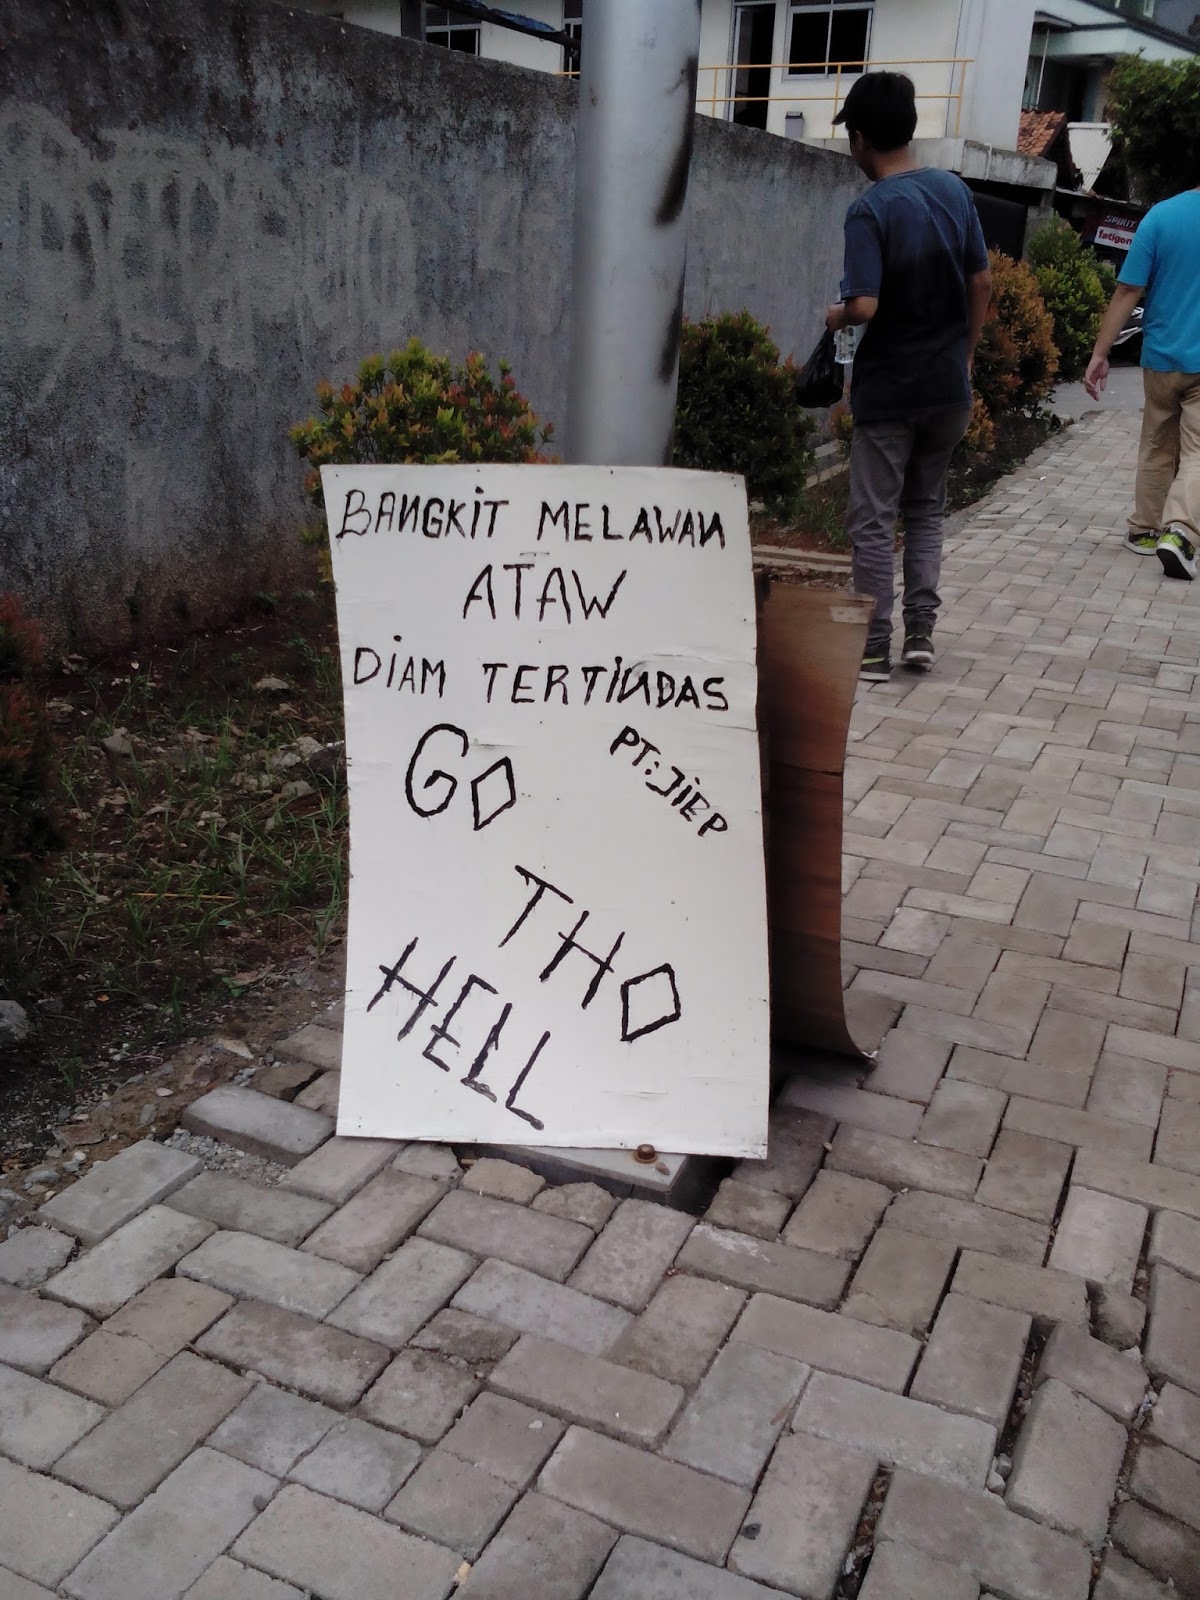 BANGKIT MELAWAN
ATAW
DIAM TERTINDAS
GO
PT. JIEP
THO
HELL
SPIRIT
fatigon